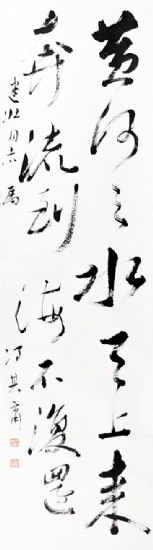 黄河之水天上来
奔流到海不復還
建壮同志属
冯其庸